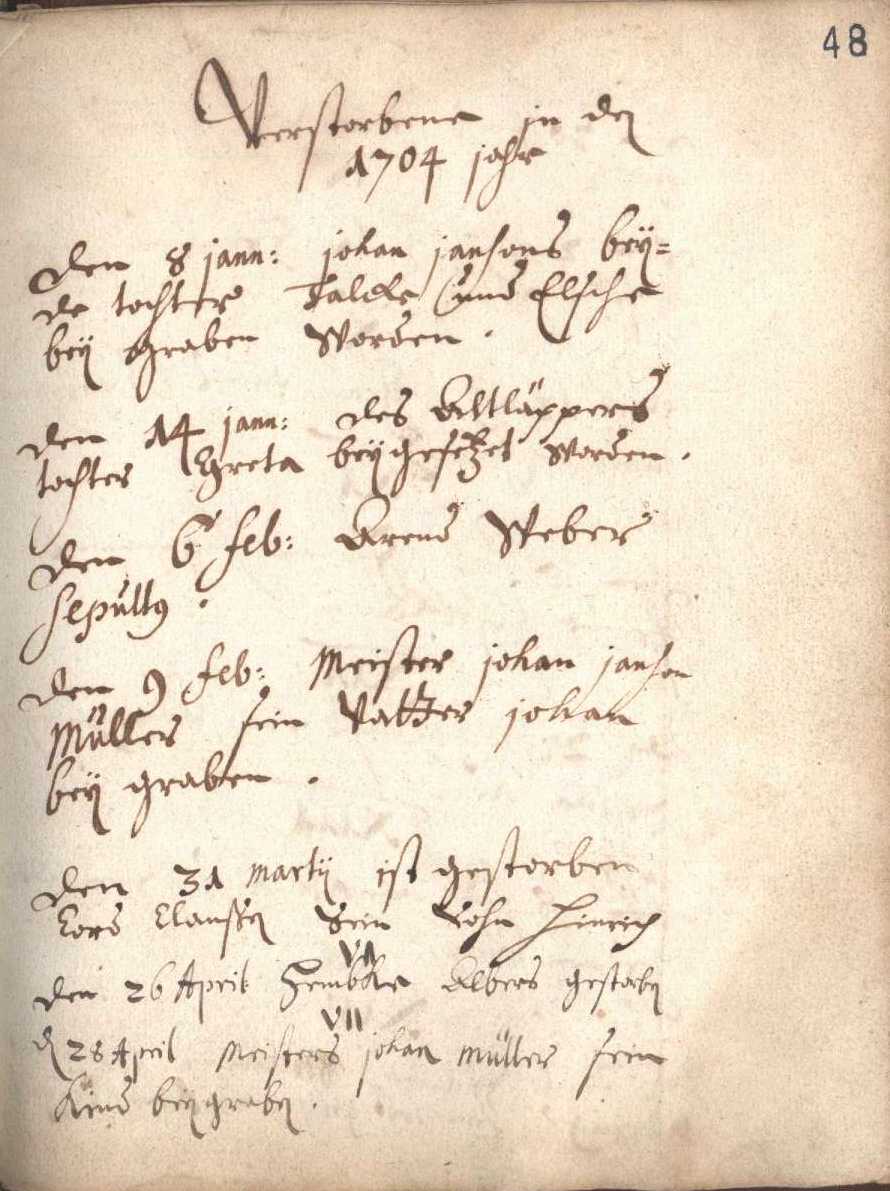 48
Verstorbene in den
1704 jahr
den 8 jann: johan jansons bey=
de tochter Talcke und Elsche
bey graben worden.
den 14 jann: des Altläppers
tochter Greta beygesetzet worden.
den 6 feb: Arend Weber
sepult9.
den 9 feb: Meister johan janson
Müller sein Vatter johan
bey graben.
den 31 Martij ist gestorben
Cord Claußen sein Sohn Hinrich
VI
den 26 April Albers gestorben
VII
d 28 April Meisters johan Müller sein
Kind beygraben.